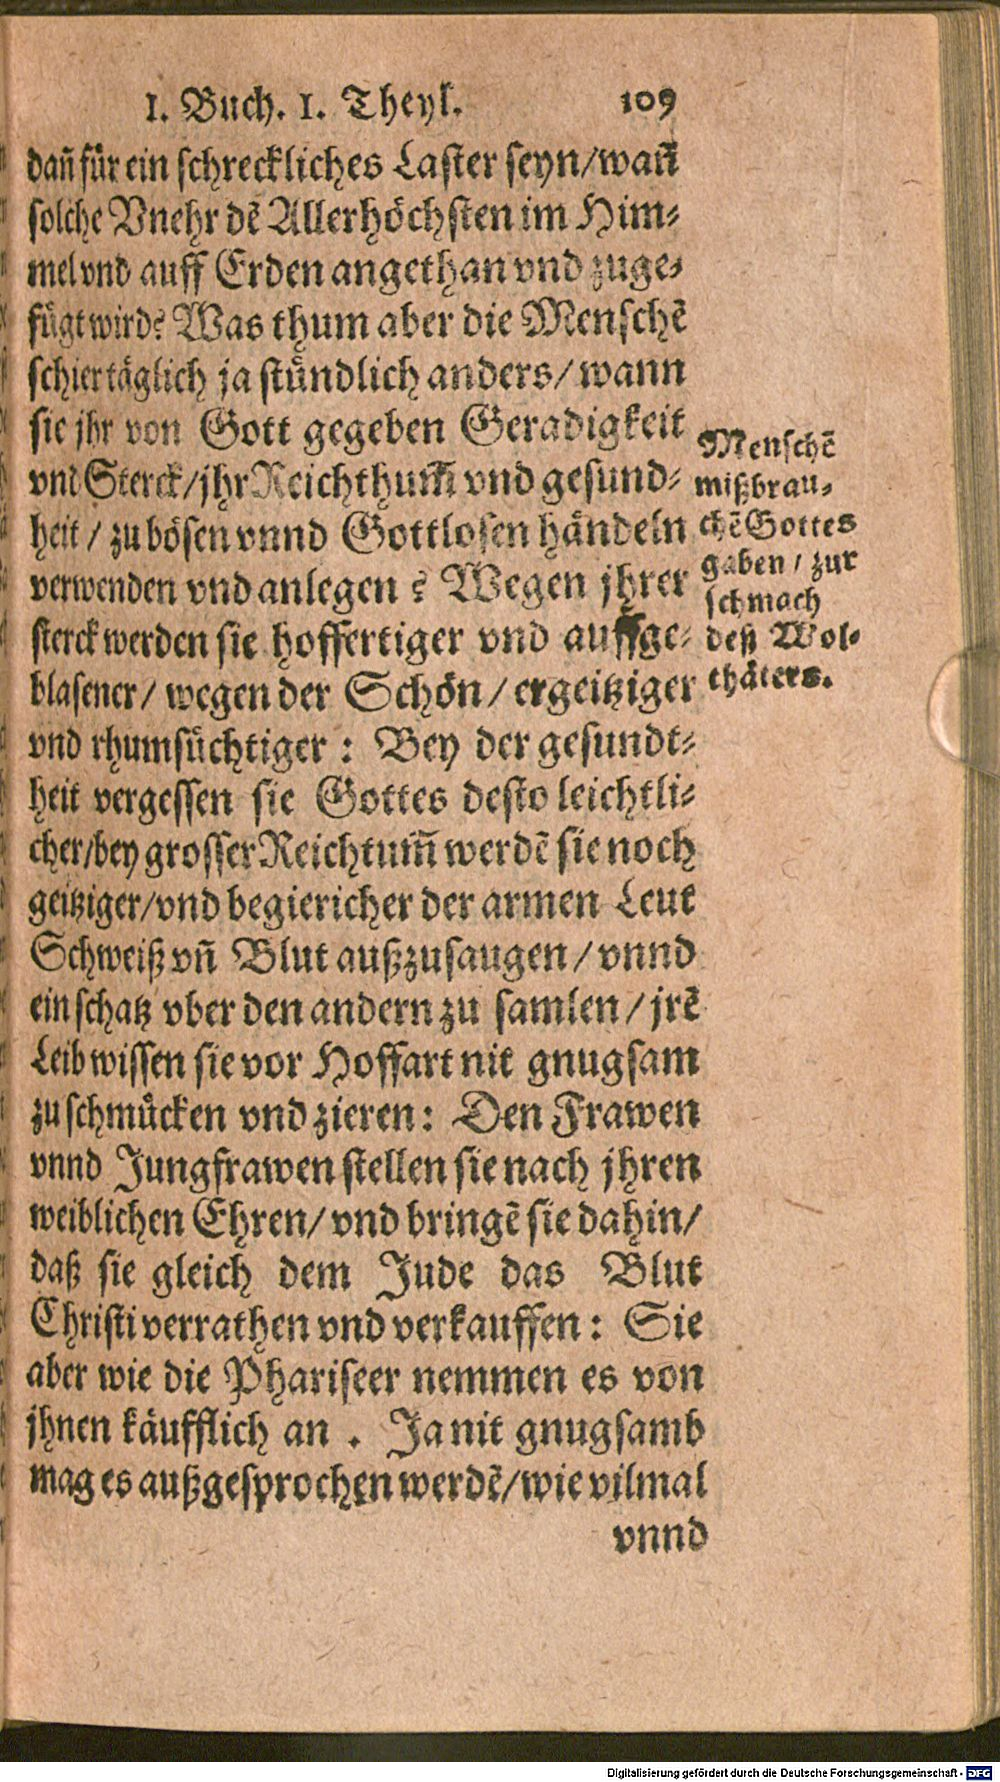 I. Buch. I. Theyl. 109
dañ für ein schreckliches Laster seyn/wañ
solche Vnehr dẽ Allerhöchsten im Him⸗
mel vnd auff Erden angethan vnd zuge⸗
fügt wird? Was thum aber die Menschẽ
schier täglich ja stündlich anders/ wann
sie jhr von Gott gegeben Geradigkeit
vnd Sterck/jhr Reichthum̃ vnd gesund⸗
heit / zu bösen vnnd Gottlosen händeln
verwenden vnd anlegen ? Wegen jhrer
sterck werden sie hoffertiger vnd auffge⸗
blasener/ wegen der Schön/ ergeitziger
vnd rhumsüchtiger : Bey der gesundt⸗
heit vergessen sie Gottes desto leichtli⸗
cher/bey grosser Reichtum̃ werdẽ sie noch
geitziger/vnd begiericher der armen Leut
Schweiß vñ Blut außzusaugen / vnnd
ein schatz vber den andern zu samlen / jrẽ
Leib wissen sie vor Hoffart nit gnugsam
zu schmücken vnd zieren: Den Frawen
vnnd Jungfrawen stellen sie nach jhren
weiblichen Ehren/ vnd bringẽ sie dahin/
daß sie gleich dem Jude das Blut
Christi verrathen vnd verkauffen : Sie
aber wie die Phariseer nemmen es von
jhnen käufflich an . Ja nit gnugsamb
mag es außgesprochen werdẽ/wie vilmal
vnnd
Menschẽ
mißbrau⸗
chẽ Gottes
gaben / zur
schmach
deß Wol⸗
thäters.
Digitalisierung gefördert durch die Deutsche Forschungsgemeinschaft - DFG